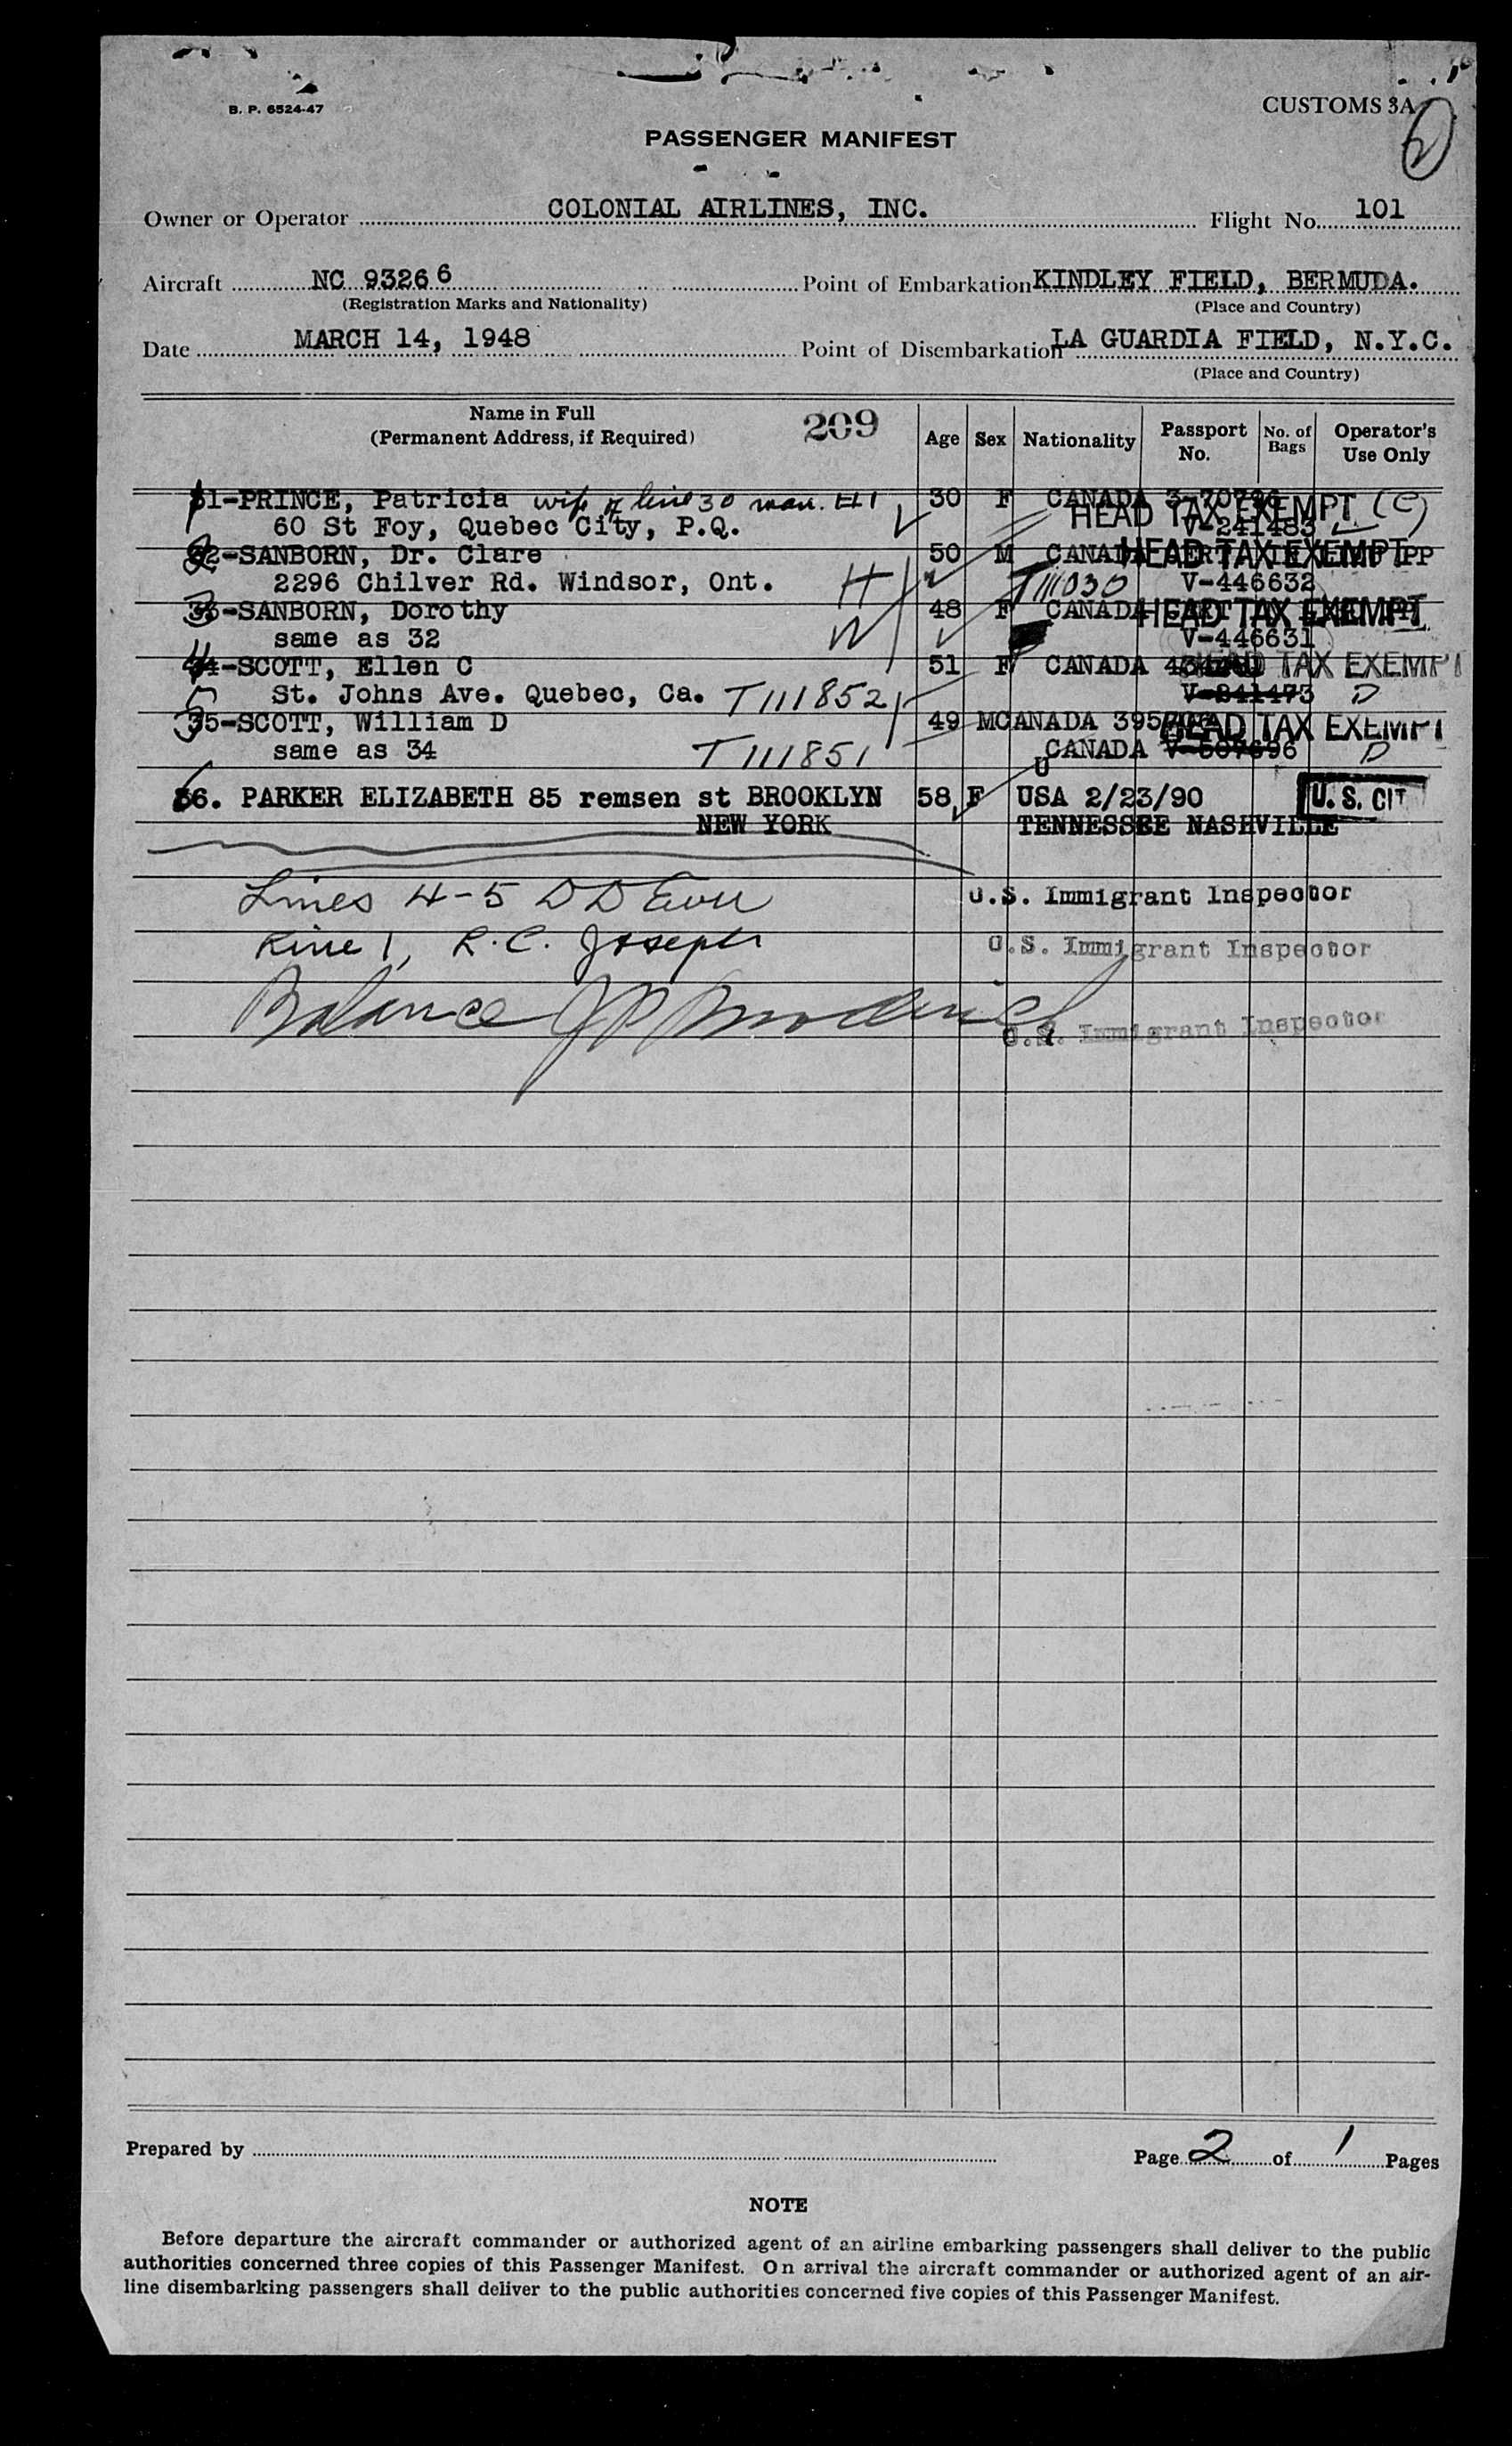 B. P. 6524-47
CUSTOMS 3A
2
PASSENGER MANIFEST
Owner or Operator COLONIAL AIRLINES, INC. Flight No. 101
Aircraft NC 93266 Point of Embarkation KINDLEY FIELD, BERMUDA.
(Registration Marks and Nationality) (Place and Country)
Date MARCH 14, 1948 Point of Disembarkation LA GUARDIA FIELD, N.Y.C.
(Place and Country)
Name in Full
(Permanent Address, if Required) 209 Age Sex Nationality Passport No. No. of Bags Operator's Use Only
31-PRINCE, Patricia wife of line 30 30 F CANADA HEAD TAX EXEMPT (C)
60 St Foy, Quebec City, P.Q. V-241483
32-SANBORN, Dr. Clare 50 M CANADA HEAD TAX EXEMPT PP
2296 Chilver Rd. Windsor, Ont. H T111030 V-446632
33-SANBORN, Dorothy 48 F CANADA HEAD TAX EXEMPT
same as 32 W V-446631
34-SCOTT, Ellen C 51 F CANADA HEAD TAX EXEMPT
St. Johns Ave. Quebec, Ca. T111852 D
35-SCOTT, William D 49 M CANADA HEAD TAX EXEMPT
same as 34 T111851 CANADA D
36. PARKER ELIZABETH 85 remsen st BROOKLYN 58 F USA 2/23/90 U.S. CIT
NEW YORK TENNESSEE NASHVILLE
Lines 4-5 U.S. Immigrant Inspector
Line 1, R.C. Joseph U.S. Immigrant Inspector
Balance U.S. Immigrant Inspector
Prepared by Page 2 of 1 Pages
NOTE
Before departure the aircraft commander or authorized agent of an airline embarking passengers shall deliver to the public
authorities concerned three copies of this Passenger Manifest. On arrival the aircraft commander or authorized agent of an air-
line disembarking passengers shall deliver to the public authorities concerned five copies of this Passenger Manifest.